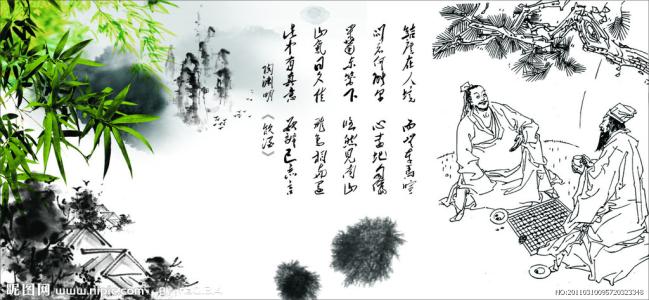 結廬在人境 而無車馬喧
問君何能爾 心遠地自偏
采菊東籬下 悠然見南山
山氣日夕佳 飛鳥相與還
此中有真意 欲辨已忘言
陶渊明《飲酒》
昵图网 www.nipic.com
NO:20110310095720323348